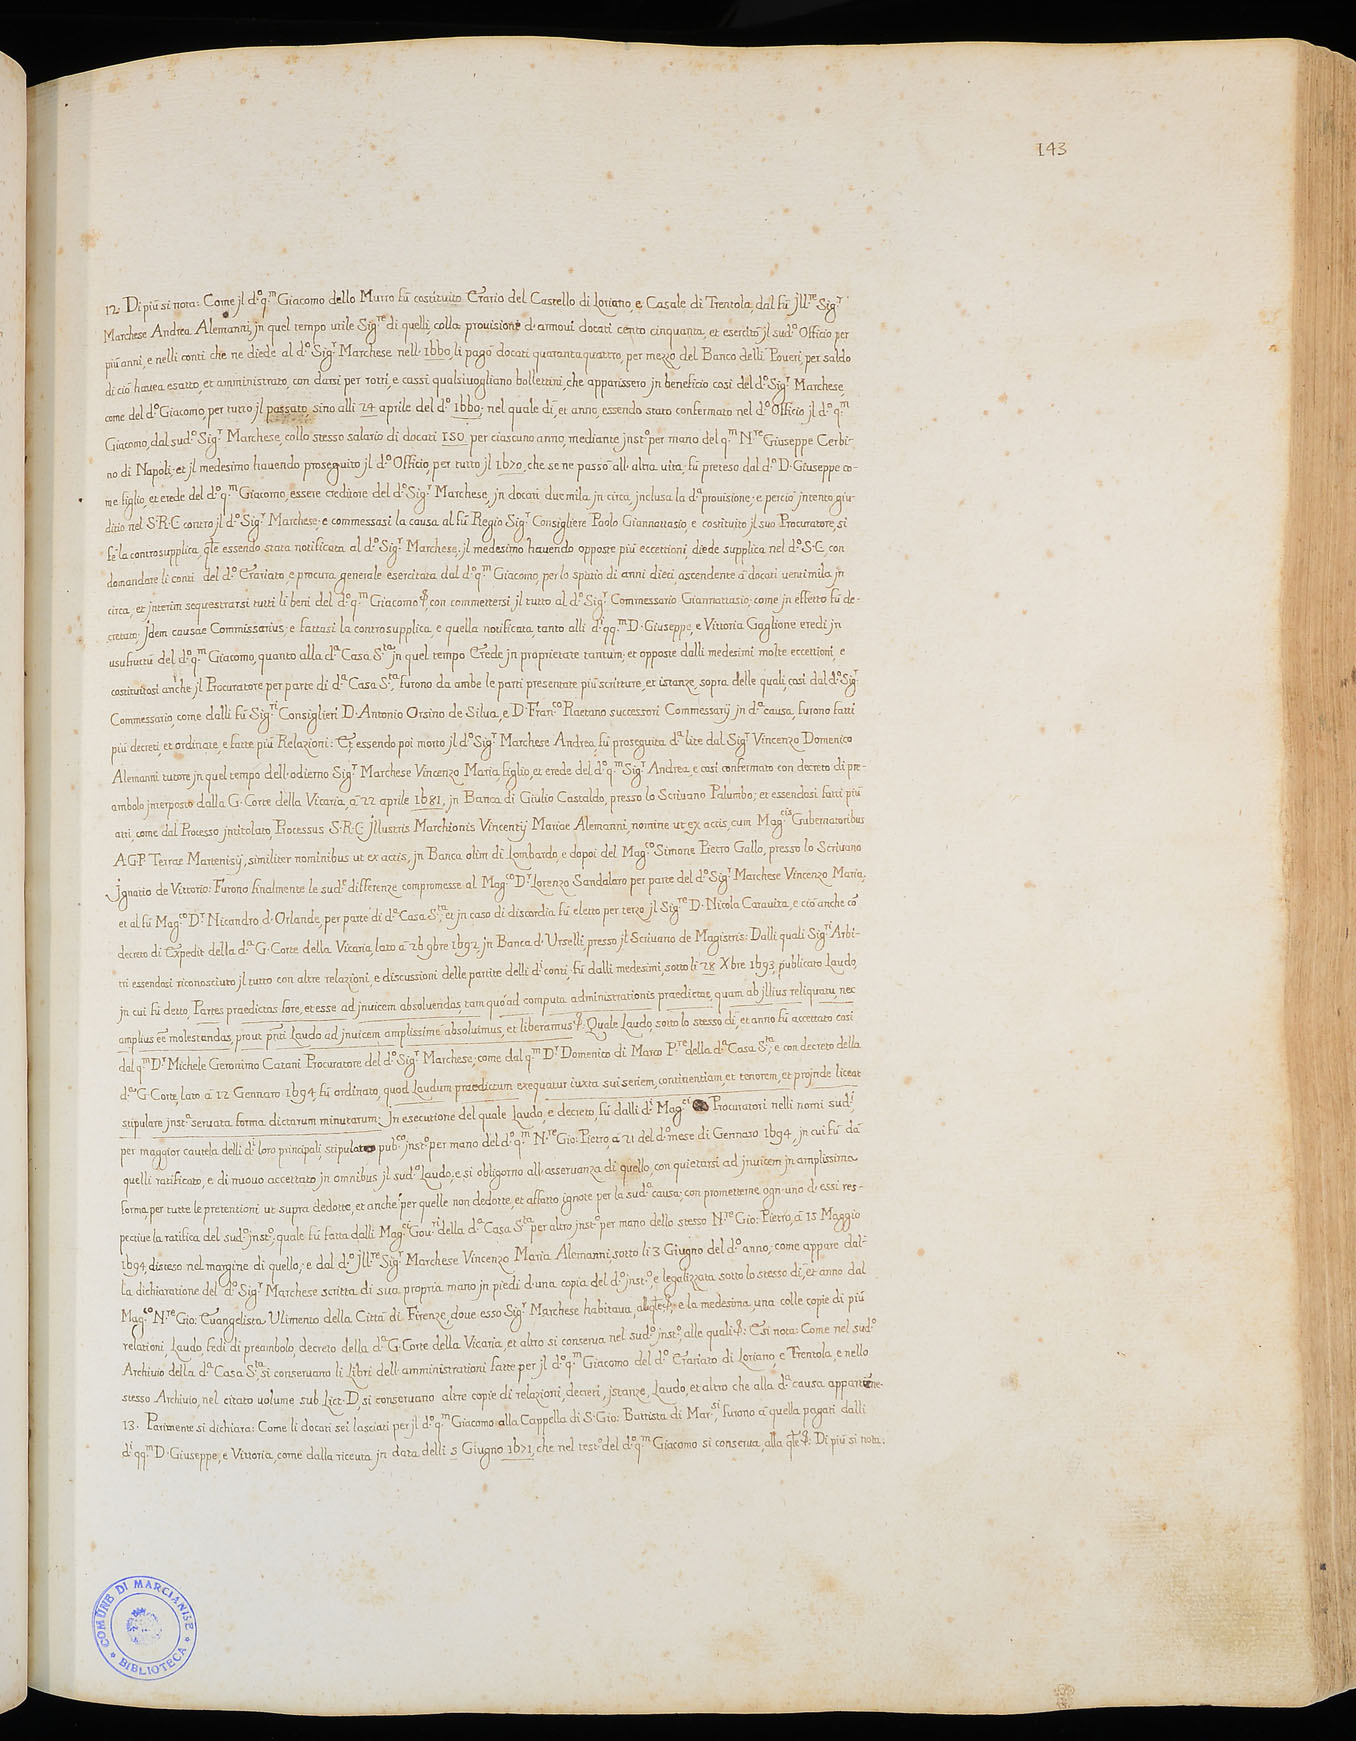 143
12. Di più si nota: Come jl d.º q.m Giacomo dello Murro fù costituito Erario del Castello di Loriano, e Casale di Trentola, dal fù jll.re Sig.r
Marchese Andrea Alemanni, jn quel tempo utile Sig.re di quelli, colla prouisione d'annoui docati cento cinquanta, et esercitò jl sud.º Officio per
più anni, e nelli conti che ne diede al d.º Sig.r Marchese nell' 1660, li pagò docati quaranta quattro, per mezzo del Banco delli Poueri, per saldo
di ciò hauea esatto, et amministrato, con darsi per rotti, e cassi qualsiuogliano bollettini, che apparissero jn beneficio così del d.º Sig.r Marchese,
come del d.º Giacomo, per tutto jl passato, sino alli 24 aprile del d.º 1660; nel quale dì, et anno, essendo stato confermato nel d.º Officio jl d.º q.m
Giacomo, dal sud.º Sig.r Marchese, collo stesso salario di docati 150 per ciascuno anno, mediante jnst.º per mano del q.m N.re Giuseppe Cerbi-
no di Napoli; et jl medesimo hauendo proseguito jl d.º Officio, per tutto jl 1670, che se ne passò all'altra uita; fù preteso dal d.º D. Giuseppe co-
me figlio, et erede del d.º q.m Giacomo, essere creditore del d.º Sig.r Marchese, jn docati due mila jn circa, jnclusa la d.a prouisione; e perciò jntentò giu-
ditio nel S.R.C. contro jl d.º Sig.r Marchese; e commessasi la causa al fù Regio Sig.r Consigliere Paolo Giannattasio, e costituito jl suo Procuratore, si
fè la controsupplica, qle essendo stata notificata al d.º Sig.r Marchese; jl medesimo hauendo opposte più eccettioni, diede supplica nel d.º S.C., con
domandare li conti del d.º Erariato, e procura generale esercitata dal d.º q.m Giacomo, per lo spatio di anni dieci, ascendente à docati uentimila jn
circa, et jnterim sequestrarsi tutti li beni del d.º q.m Giacomo &, con commettersi jl tutto al d.º Sig.r Commessario Giannattasio; come jn effetto fù de-
cretato; Jdem causae Commissarius; e fattasi la controsupplica, e quella notificata tanto alli d.i qq.m D. Giuseppe, e Vittoria Gaglione eredi jn
usufructu del d.º q.m Giacomo, quanto alla d.a Casa S.ta jn quel tempo Erede jn proprietate tantum; et opposte dalli medesimi molte eccettioni, e
costituitosi anche jl Procuratore per parte di d.a Casa S.ta, furono da ambe le parti presentate più scritture, et istanze, sopra delle quali, così dal d.º Sig.r
Commessario, come dalli fù Sig.ri Consiglieri D. Antonio Orsino de Silua, e D. Fran.co Raetano successori Commessarij jn d.a causa, furono fatti
più decreti, et ordinate, e fatte più Relazioni: Et essendo poi morto jl d.º Sig.r Marchese Andrea, fù proseguita d.a lite dal Sig.r Vincenzo Domenico
Alemanni tutore jn quel tempo dell'odierno Sig.r Marchese Vincenzo Maria, figlio, et erede del d.º q.m Sig.r Andrea, e così confermato con decreto di pre-
ambolo jnterposto dalla G. Corte della Vicaria, à 22 aprile 1681, jn Banca di Giulio Castaldo, presso lo Scriuano Palumbo; et essendosi fatti più
atti, come dal Processo jntitolato, Processus S.R.C. jllustris Marchionis Vincentij Mariae Alemanni, nomine ut ex actis, cum Mag.cis Gubernatoribus
A.G.P. Terrae Martenisij, similiter nominibus ut ex actis, jn Banca olim di Lombardo, e dopoi del Mag.co Simone Pietro Gallo, presso lo Scriuano
Jgnatio de Vittorio: Furono finalmente le sud.e differenze compromesse al Mag.co D.r Lorenzo Sandalaro per parte del d.º Sig.r Marchese Vincenzo Maria,
et al fù Mag.co D.r Nicandro d'Orlande, per parte di d.a Casa S.ta, et jn caso di discordia fù eletto per terzo jl Sig.re D. Nicola Carauita, e ciò anche cõ
decreto di Expedit della d.a G. Corte della Vicaria, lato à 26 9bre 1692, jn Banca d'Urselli, presso jl Scriuano de Magistris: Dalli quali Sig.ri Arbi-
tri essendosi riconosciuto jl tutto con altre relazioni, e discussioni delle partite delli d.i conti, fù dalli medesimi, sotto li 28 Xbre 1693, publicato Laudo,
jn cui fù detto, Partes praedictas fore, et esse ad jnuicem absoluendas, tam quo ad computa administrationis praedictae, quam ab jllius reliquatu, nec
amplius eẽ molestandas, prout pñti Laudo ad jnuicem amplissime absoluimus, et liberamus &. Quale Laudo, sotto lo stesso dì, et anno fù accettato così
dal q.m D.r Michele Geronimo Catani Procuratore del d.º Sig.r Marchese, come dal q.m D.r Domenico di Marco P.re della d.a Casa S.ta; e con decreto della
d.a G. Corte, lato à 12 Gennaro 1694 fù ordinato, quod Laudum praedictum exequatur iuxta sui seriem, continentiam, et tenorem, et projnde liceat
stipulare jnst.a seruata forma dictarum minutarum; Jn esecutione del quale Laudo, e decreto, fù dalli d.i Mag.ci Procuratori nelli nomi sud.i,
per maggior cautela delli d.i loro principali, stipulato pub.co jnst.º per mano del d.º q.m N.re Gio: Pietro, à 21 del d.º mese di Gennaro 1694, jn cui fù dà
quelli ratificato, e di nuovo accettato jn omnibus jl sud.º Laudo, e si obligorno all'asseruanza di quello, con quietarsi ad jnuicem jn amplissima
forma, per tutte le pretentioni ut supra dedotte, et anche per quelle non dedotte, et affatto ignote per la sud.a causa; con prometterne ogn'uno d'essi res-
pectiue la ratifica del sud.º jnst.º; quale fù fatta dalli Mag.ci Gou.ri della d.a Casa S.ta per altro jnst.º per mano dello stesso N.re Gio: Pietro, à 15 Maggio
1694, disteso nel margine di quello; e dal d.º jll.re Sig.r Marchese Vincenzo Maria Alemanni, sotto li 3 Giugno del d.º anno; come appare dal-
la dichiaratione del d.º Sig.r Marchese scritta di sua propria mano jn piedi d'una copia del d.º jnst.º, e legalizzata sotto lo stesso dì, et anno dal
Mag.co N.re Gio: Euangelista Ulimento della Città di Firenze, doue esso Sig.r Marchese habitaua, e la medesima, una colle copie di più
relationi, Laudo, fedi di preambolo, decreto della d.a G. Corte della Vicaria, et altro si conserua nel sud.º jnst.º, alle quali &: E si nota: Come nel sud.º
Archiuio della d.a Casa S.ta si conseruano li Libri dell'amministrationi fatte per jl d.º q.m Giacomo del d.º Erariato di Loriano, e Trentola, e nello
stesso Archiuio, nel citato uolume sub Lict. D, si conseruano altre copie di relazioni, decreti, jstanze, Laudo, et altro che alla d.a causa appartiene.
13. Parimente si dichiara: Come li docati sei lasciati per jl d.º q.m Giacomo alla Cappella di S. Gio: Battista di Mar.si, furono à quella pagati dalli
d.i qq.m D. Giuseppe, e Vittoria, come dalla riceuta jn data delli 5 Giugno 1671, che nel test.º del d.º q.m Giacomo si conserua, alla qle &: Di più si nota:
COMUNE DI MARCIANISE
BIBLIOTECA